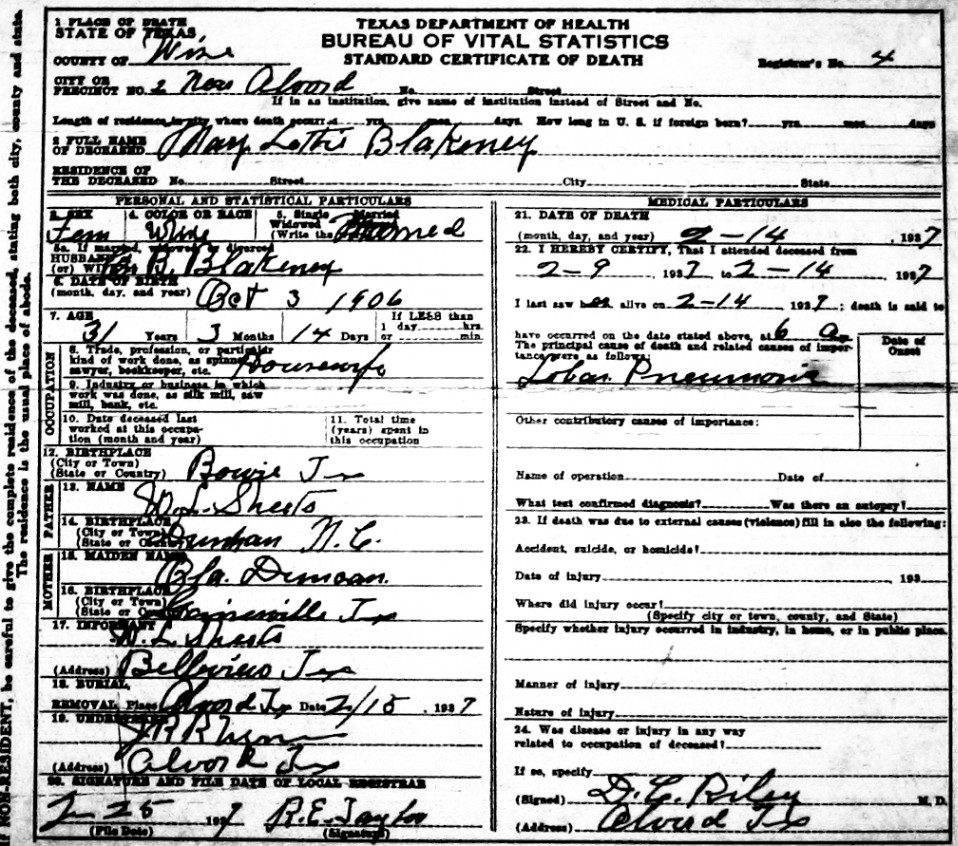 TEXAS DEPARTMENT OF HEALTH
BUREAU OF VITAL STATISTICS
STANDARD CERTIFICATE OF DEATH
1 PLACE OF DEATH
STATE OF TEXAS,
COUNTY OF Wise
Registrar's No. 4
CITY OR
PRECINCT NO. 2 Near Alvord No. Street
If in an institution, give name of institution instead of Street and No.
Length of residence in city where death occurred yrs. mos. days. How long in U. S. if foreign born? yrs. mos. days
2 FULL NAME
OF DECEASED Mary Lottie Blakeney
RESIDENCE OF
THE DECEASED No. Street City State
PERSONAL AND STATISTICAL PARTICULARS
3. SEX 4. COLOR OR RACE 5. Single Married
Widowed
(Write the
Fem White Married
5a. If married, widowed or divorced
HUSBAND
(or) WIFE B. Blakeney
6. DATE OF BIRTH
(month, day, and year) Oct 3 1906
7. AGE If LESS than
31 Years 3 Months 14 Days 1 day hrs.
or min.
OCCUPATION
8. Trade, profession, or particular
kind of work done, as spinner,
sawyer, bookkeeper, etc. Housewife
9. Industry or business in which
work was done, as silk mill, saw
mill, bank, etc.
10. Date deceased last
worked at this occupa-
tion (month and year)
11. Total time
(years) spent in
this occupation
12. BIRTHPLACE
(City or Town)
(State or Country) Bowie Tx
FATHER
13. NAME W. L. Sheets
14. BIRTHPLACE
(City or Town)
(State or Country) N. C.
MOTHER
15. MAIDEN NAME
Duncan.
16. BIRTHPLACE
(City or Town)
(State or Gainesville Tx
17. INFORMANT
W. L. Sheets
(Address) Tx
18. BURIAL,
REMOVAL, Place Alvord Tx Date 2/15, 1937
19. UNDERTAKER
J R
(Address) Alvord Tx
20. SIGNATURE AND FILE DATE OF LOCAL REGISTRAR
25 1937 R. E. Taylor
(File Date) (Signature)
MEDICAL PARTICULARS
21. DATE OF DEATH
(month, day, and year) 2-14, 1937
22. I HEREBY CERTIFY, That I attended deceased from
2-9, 1937, to 2-14, 1937
I last saw her alive on 2-14, 1937; death is said to
have occurred on the date stated above, at 6 a m.
The principal cause of death and related causes of impor-
tance were as follows: Date of
Onset
Lobar Pneumonia
Other contributory causes of importance:
Name of operation Date of
What test confirmed diagnosis? Was there an autopsy?
23. If death was due to external causes (violence) fill in also the following:
Accident, suicide, or homicide?
Date of injury 193
Where did injury occur?
(Specify city or town, county, and State)
Specify whether injury occurred in industry, in home, or in public place.
Manner of injury
Nature of injury
24. Was disease or injury in any way
related to occupation of deceased?
If so, specify
(Signed) D. C. Riley M. D.
(Address) Alvord Tx
If NON-RESIDENT, be careful to give the complete residence of the deceased, stating both city, county and state.
The residence is the usual place of abode.